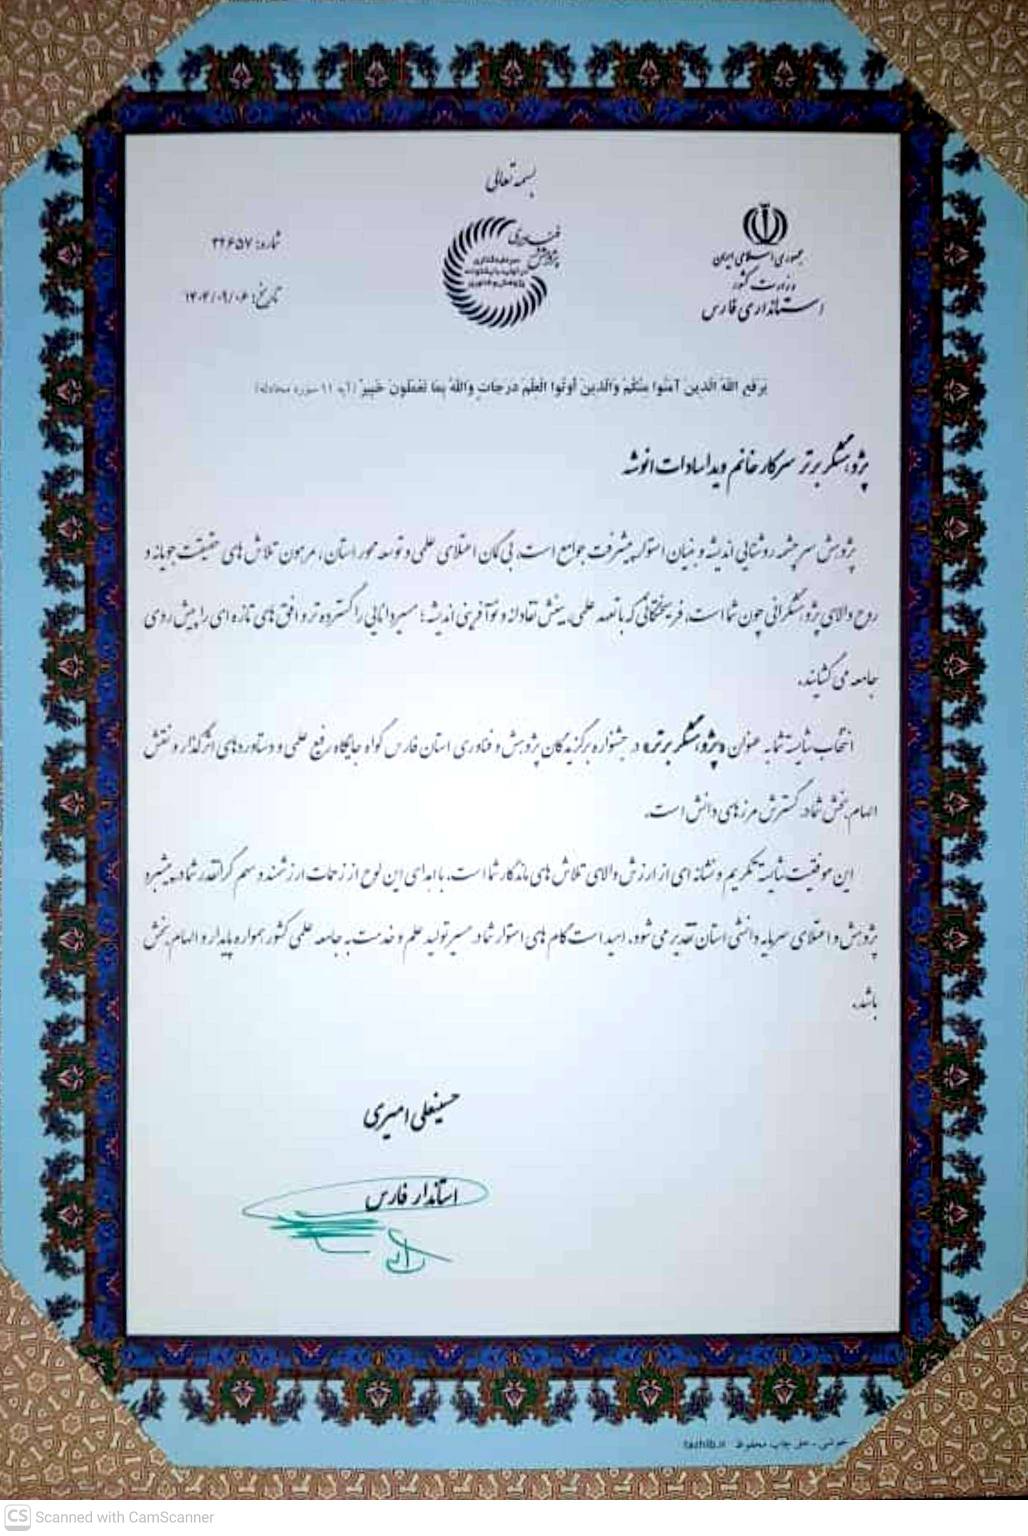 بسمه تعالی
جمهوری اسلامی ایران
وزارت کشور
استانداری فارس
پژوهش
فناوری
سرمایه‌گذاری
در تولید با پیشگامانه
پژوهش و فناوری
شماره: ۳۲۶۵۷
تاریخ: ۱۴۰۴/۰۹/۰۶
یَرفَعِ اللهُ الَّذینَ آمَنُوا مِنکُم وَالَّذینَ أُوتُوا الْعِلْمَ دَرَجَاتٍ وَاللهُ بِمَا تَعْمَلُونَ خَبِیرٌ (آیه ۱۱ سوره مجادله)
پژوهشگر برتر سرکار خانم ویدا سادات انوشه
پژوهش سرچشمه روشنایی اندیشه و بنیان استوار پیشرفت جوامع است. بی گمان اعتلای علمی و توسعه محور استان، مرهون تلاش های حقیقت جویانه و
روح والای پژوهشگرانی چون شما است، فرهیختگانی که با تعهد علمی، بینش نقادانه و نوآفرینی اندیشه؛ مسیر دانایی را گسترده تر و افق های تازه ای را پیش روی
جامعه می گشایند.
انتخاب شایسته شما به عنوان «پژوهشگر برتر» در جشنواره برگزیدگان پژوهش و فناوری استان فارس گواه جایگاه رفیع علمی و دستاوردهای اثرگذار و نقش
الهام بخش شما در گسترش مرزهای دانش است.
این موفقیت شایسته تکریم و نشانه ای از ارزش والای تلاش های ماندگار شما است. با اهدای این لوح از زحمات ارزشمند و سهم گرانقدر شما در پیشبرد
پژوهش و اعتلای سرمایه دانشی استان تقدیر می شود. امید است گام های استوار شما در مسیر تولید علم و خدمت به جامعه علمی کشور همواره پایدار و الهام بخش
باشد.
حسینعلی امیری
استاندار فارس
حق چاپ محفوظ tazhib.ir
CS Scanned with CamScanner